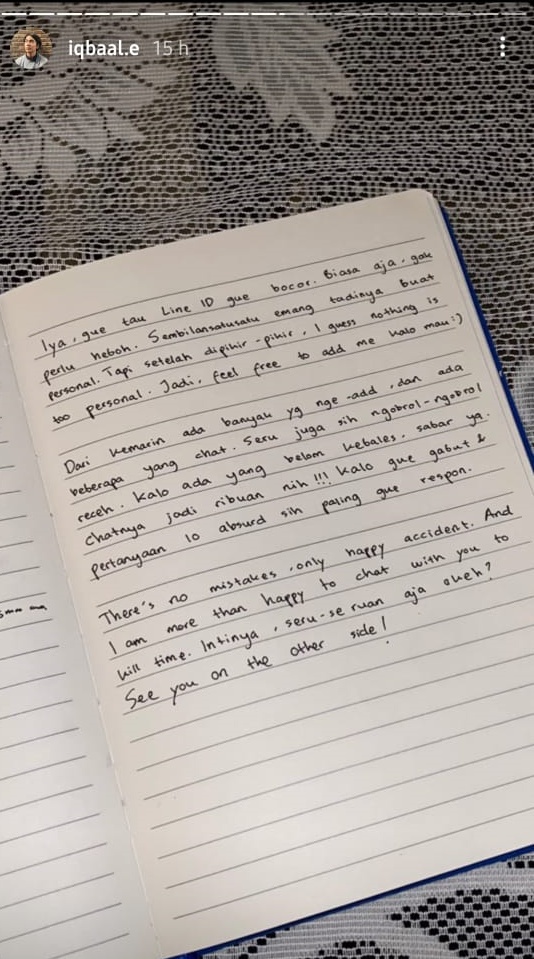 iqbaal.e 15 h
Iya, gue tau Line ID gue bocor. Biasa aja, gak
perlu heboh. Sembilansatusatu emang tadinya buat
personal. Tapi setelah dipikir-pikir, I guess nothing is
too personal. Jadi, feel free to add me kalo mau:)
Dari kemarin ada banyak yg nge-add, dan ada
beberapa yang chat. Seru juga sih ngobrol-ngobrol
receh. Kalo ada yang belom kebales, sabar ya.
Chatnya jadi ribuan nih!!! Kalo gue gabut &
pertanyaan lo absurd sih paling gue respon.
There's no mistakes, only happy accident. And
I am more than happy to chat with you to
kill time. Intinya, seru-seruan aja okeh?
See you on the other side!